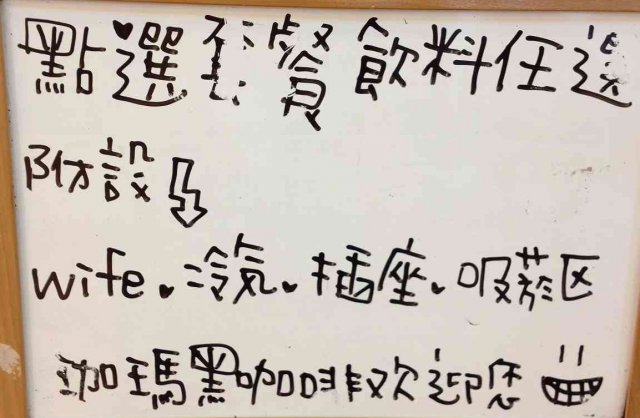 點選套餐飲料任選
附設
wife.冷氣.插座.吸菸区
珈瑪黑咖啡欢迎您